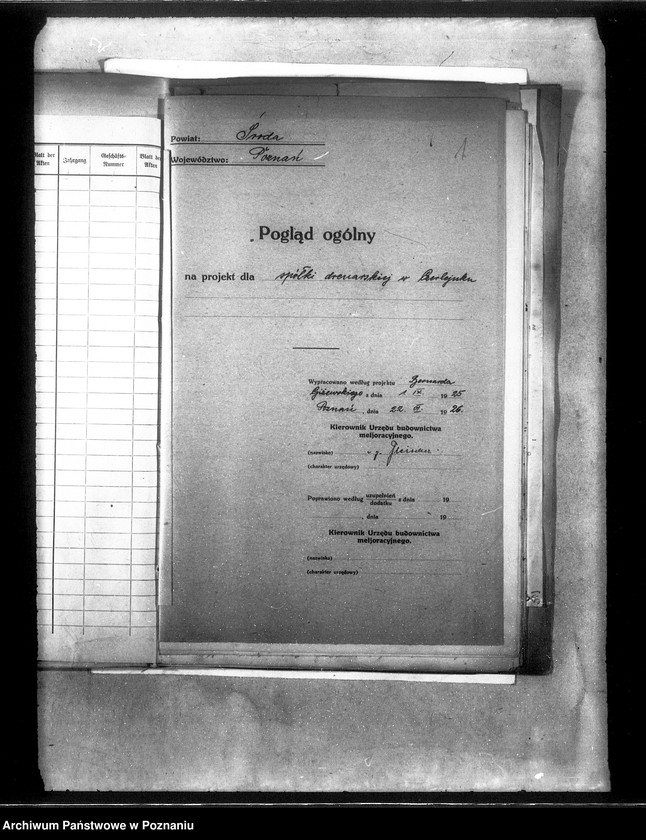 Blatt der Akten
Jahrgang
Geschäfts-Nummer
Blatt der Akten
Powiat: Środa
Województwo: Poznań
1
Pogląd ogólny
na projekt dla spółki drenarskiej w
Wypracowano według projektu Bernarda
z dnia 1 IV. 1925
Poznań, dnia 22. 1926.
Kierownik Urzędu budownictwa
meljoracyjnego.
(nazwisko)
(charakter urzędowy)
Poprawiono według uzupełnień dodatku z dnia 19
, dnia 19
Kierownik Urzędu budownictwa
meljoracyjnego.
(nazwisko)
(charakter urzędowy)
Archiwum Państwowe w Poznaniu